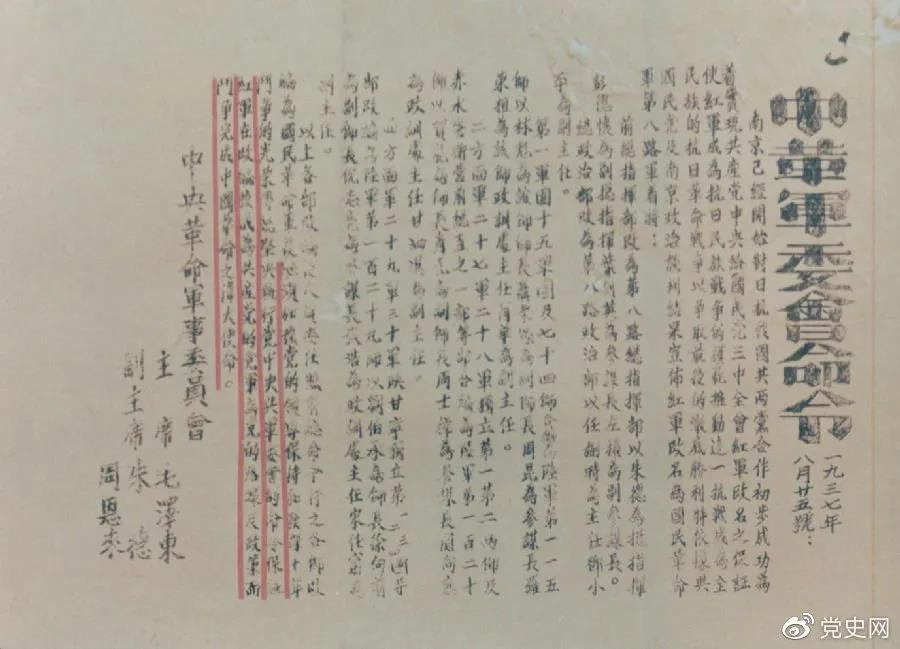 中華軍委會命令
一九三七年
八月廿五號：
南京已經開始對日抗戰國共兩黨合作初步成功為
着實現共產党中央給國民党三中全會紅軍改名之保証
使紅軍成為抗日民族战争的模範推動這一抗戰成為全
民族的抗日革命戰争以争取最後的澈底勝利特依據與
國民党及南京政治談判結果宣佈紅軍改名為國民革命
軍第八路軍着將：
前總指揮部改為第八路總指揮部以朱德為總指揮
彭德懷為副總指揮葉劍英為参謀長左權為副参謀長。
總政治部改為第八路政治部以任弼時為主任鄧小
平為副主任。
第一軍團十五軍團及七十四師 陸軍第一一五
師以林彪為該師師長聶榮臻為副師長周昆為参謀長羅
榮桓為該師政訓處主任蕭華為副主任。
二方面軍二十七軍二十八軍獨立第一第二兩師及
赤水警衛營前總直之一部等部合編為陸軍第一二十
師以賀龍為師長蕭克為副師長周士第為参謀長關向應
為政訓處主任甘泗淇為副主任。
四方面軍二十九軍三十軍陝甘寧獨立第一二三四等
部改編為陸軍第一百二十九師以劉伯承為師長徐向前
為副師長倪志亮為参謀長張浩為政訓處主任宋任窮為
副主任。
以上各部改編 人員委任照 命令行之各部改
編為國民革命軍後必須加强党的領導保持和發揮十年
鬥争的光榮傳統堅决執行党中央與軍委會的命令保証
紅軍在改編後成為共產党的党軍為党的路線及政策而
鬥争完成中國革命之偉大使命。
中央革命軍事委員會
主席 毛澤東
副主席 朱德
周恩來
党史网